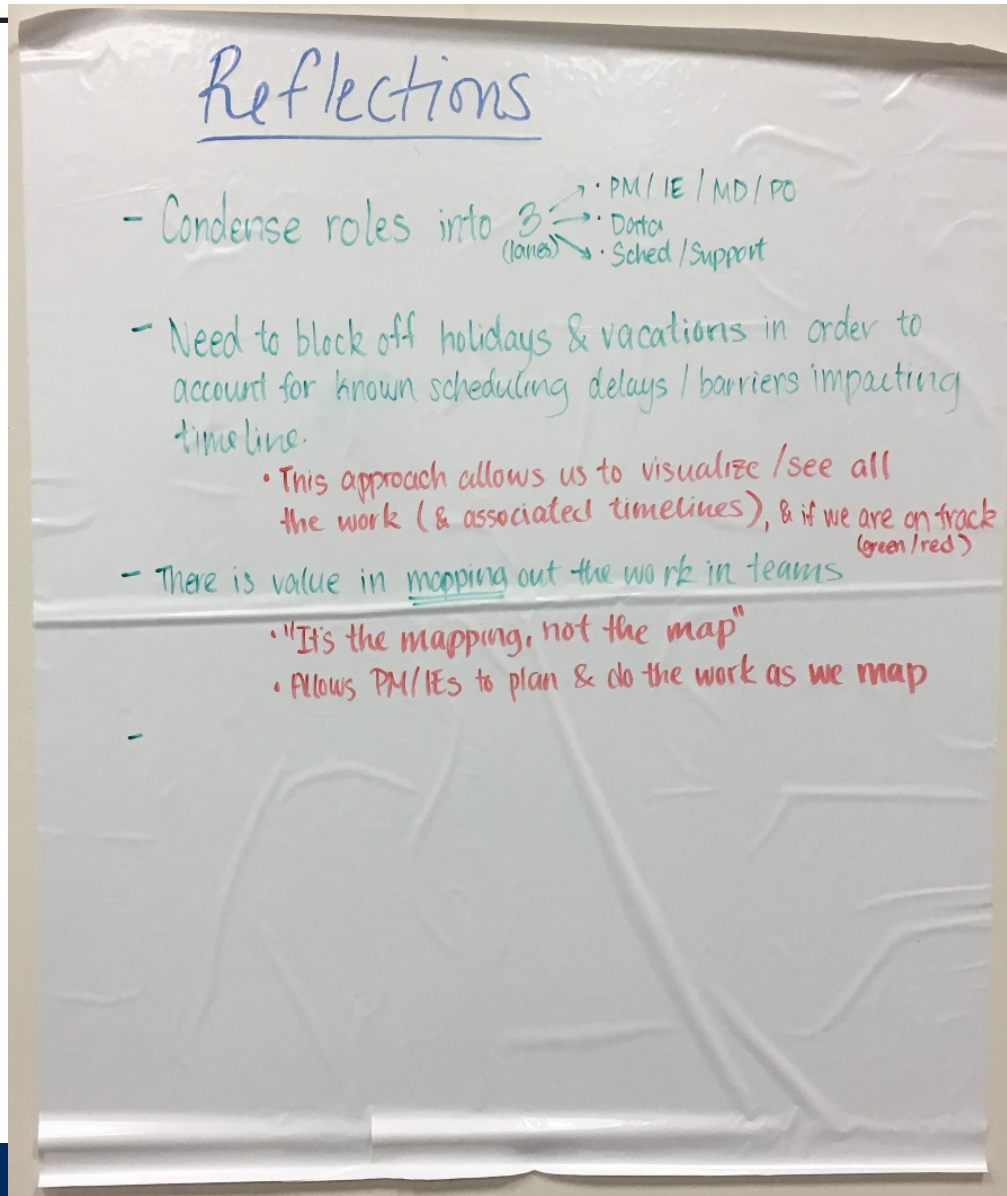 Reflections
- Condense roles into 3 (lanes)
· PM / IE / MD / PO
· Data
· Sched / Support
- Need to block off holidays & vacations in order to
account for known scheduling delays / barriers impacting
timeline.
· This approach allows us to visualize / see all
the work (& associated timelines), & if we are on track
(green / red)
- There is value in mapping out the work in teams
· "It's the mapping, not the map"
· Allows PM/IEs to plan & do the work as we map
-